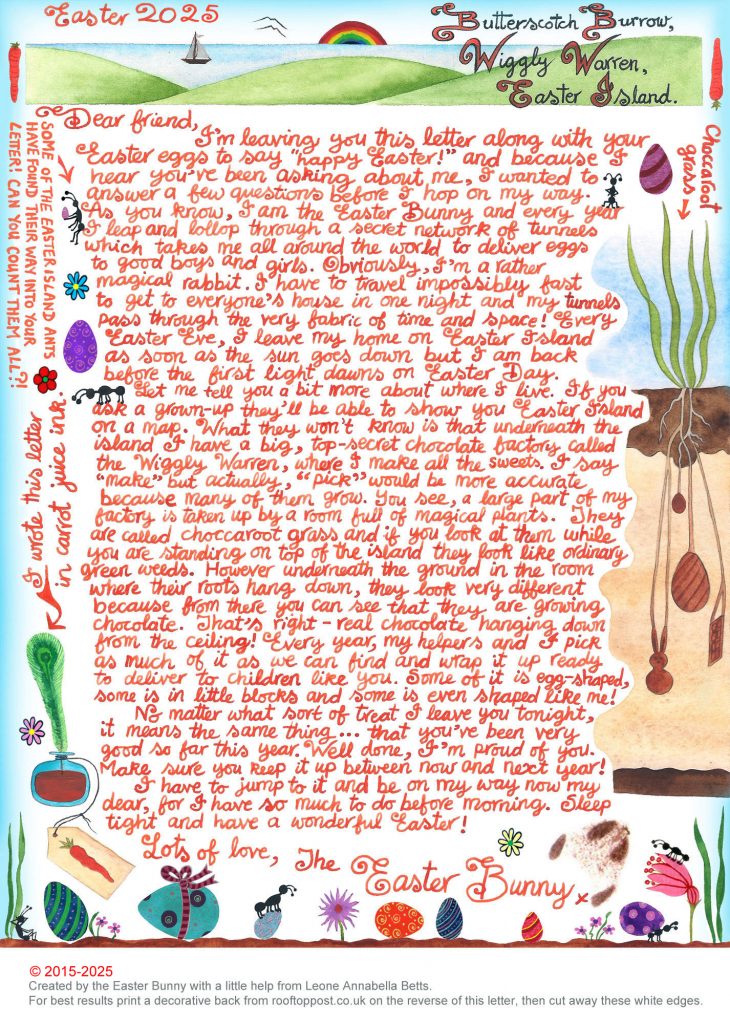 Easter 2025
Butterscotch Burrow,
Wiggly Warren,
Easter Island.
Dear friend,
I'm leaving you this letter along with your
Easter eggs to say "happy Easter!" and because I
hear you've been asking about me, I wanted to
answer a few questions before I hop on my way.
As you know, I am the Easter Bunny and every year
I leap and lollop through a secret network of tunnels
which takes me all around the world to deliver eggs
to good boys and girls. Obviously, I'm a rather
magical rabbit. I have to travel impossibly fast
to get to everyone's house in one night and my tunnels
pass through the very fabric of time and space! Every
Easter Eve, I leave my home on Easter Island
as soon as the sun goes down but I am back
before the first light dawns on Easter Day.
Let me tell you a bit more about where I live. If you
ask a grown-up they'll be able to show you Easter Island
on a map. What they won't know is that underneath the
island I have a big, top-secret chocolate factory called
the Wiggly Warren, where I make all the sweets. I say
"make" but actually, "pick" would be more accurate
because many of them grow. You see, a large part of my
factory is taken up by a room full of magical plants. They
are called choccaroot grass and if you look at them while
you are standing on top of the island they look like ordinary
green weeds. However underneath the ground in the room
where their roots hang down, they look very different
because from there you can see that they are growing
chocolate. That's right - real chocolate hanging down
from the ceiling! Every year, my helpers and I pick
as much of it as we can find and wrap it up ready
to deliver to children like you. Some of it is egg-shaped,
some is in little blocks and some is even shaped like me!
No matter what sort of treat I leave you tonight,
it means the same thing... that you've been very
good so far this year. Well done, I'm proud of you.
Make sure you keep it up between now and next year!
I have to jump to it and be on my way now my
dear, for I have so much to do before morning. Sleep
tight and have a wonderful Easter!
Lots of love, The Easter Bunny x
SOME OF THE EASTER ISLAND ANTS
HAVE FOUND THEIR WAY INTO YOUR
LETTER! CAN YOU COUNT THEM ALL?!
I wrote this letter
in carrot juice ink.
Choccaroot
grass
© 2015-2025
Created by the Easter Bunny with a little help from Leone Annabella Betts.
For best results print a decorative back from rooftoppost.co.uk on the reverse of this letter, then cut away these white edges.